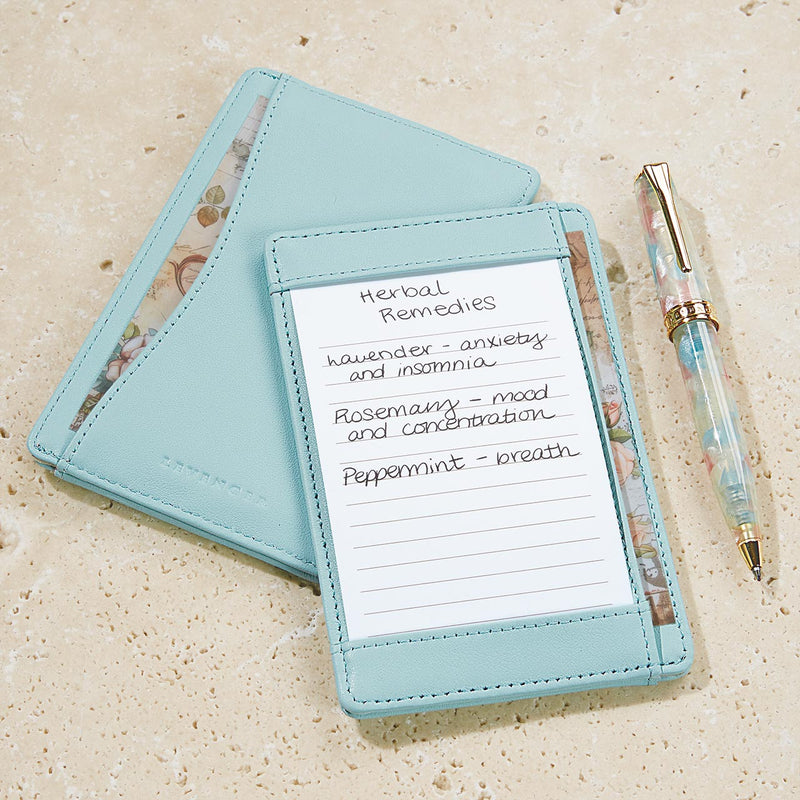 Herbal
Remedies
Lavender - anxiety
and insomnia
Rosemary - mood
and concentration
Peppermint - breath
LEVENGER